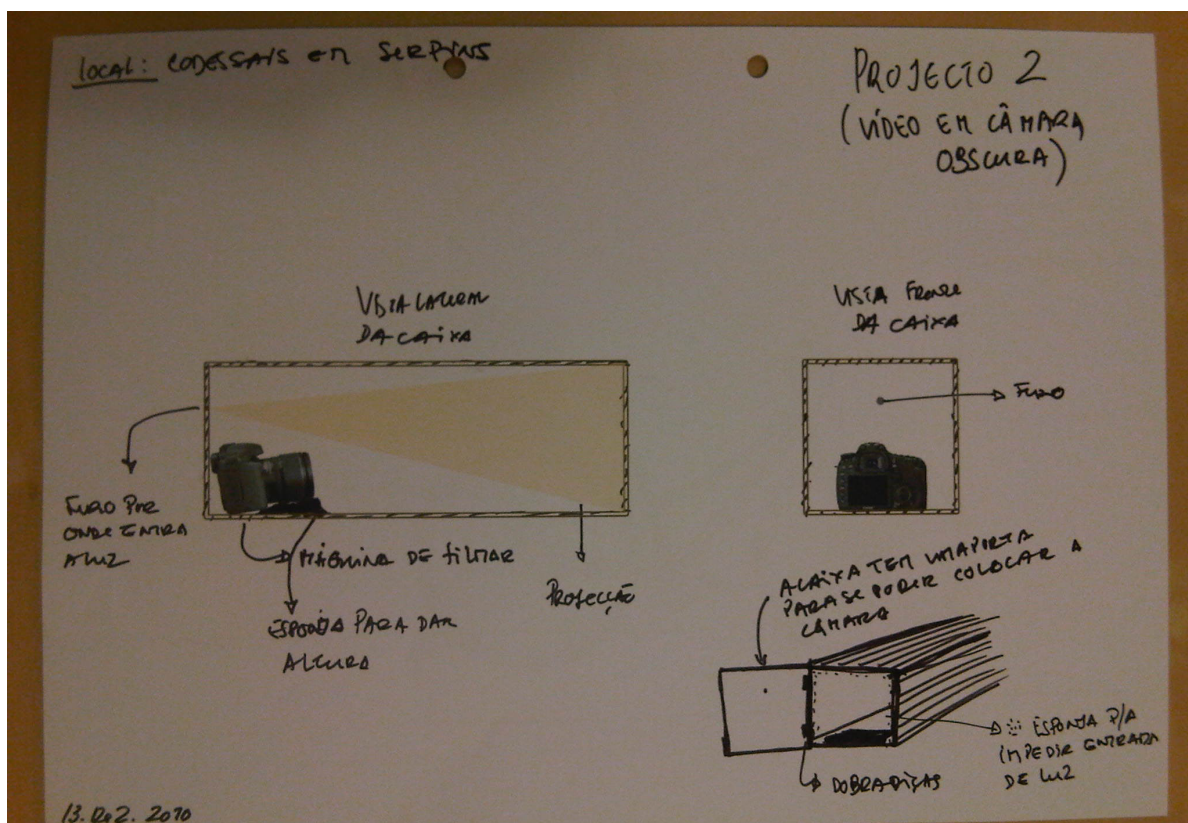 LOCAL: CODESSAIS EM SERPINS
PROJECTO 2
(VÍDEO EM CÂMARA
OBSCURA)
VISTA LATERAL
DA CAIXA
VISTA FRONTAL
DA CAIXA
FURO
FURO POR
ONDE ENTRA
A LUZ
MÁQUINA DE FILMAR
PROJECÇÃO
ESPONJA PARA DAR
ALTURA
A CAIXA TEM UMA PORTA
PARA SE PODER COLOCAR A
CÂMARA
ESPONJA P/A
IMPEDIR ENTRADA
DE LUZ
DOBRADIÇAS
13. DEZ. 2010